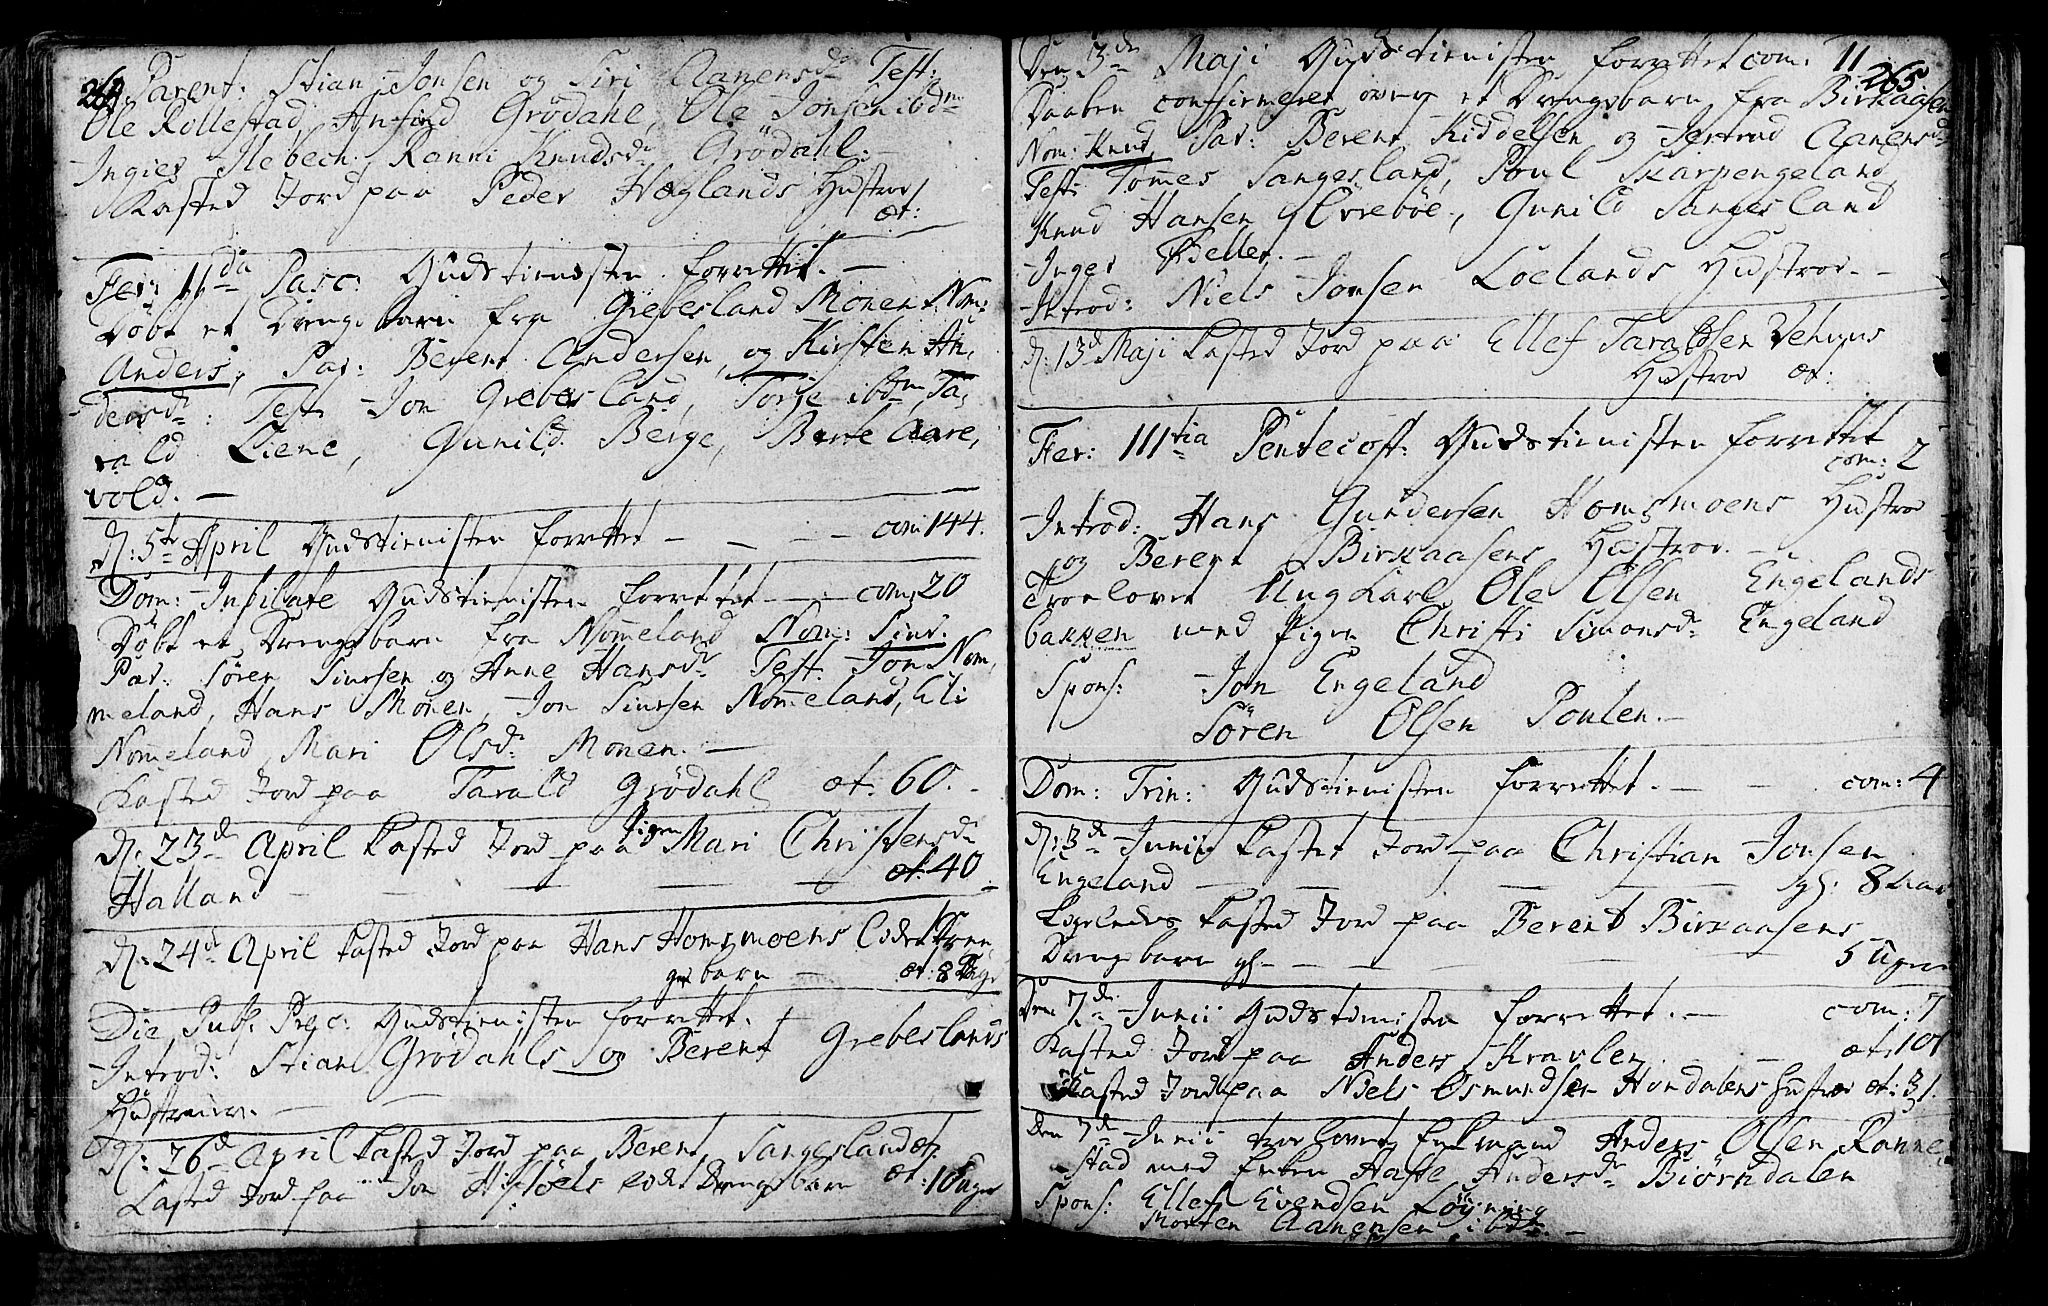 264 Parent: Stian Jonsen og Siri Aanensdr Test:
Ole Röllestad, Anfind Grödahl, Ole Jonsen ibdm
Ingier Ilebech, Ranni Knudsdr Grödahl. -
Kasted Jord paa Peder Høglands Hustroe
æt:
Fer: IIda Pasc: Gudstienisten forrettet. -
Döbt et Drengebarn fra Grebesland Monen Nom:
Anders, Par: Berent Andersen, og Kirsten An,
dersdr: Test: Jon Grebesland, Torje ibdm, Ta,
rald Liene, Gunild Berge, Berte Aare,
vold. -
d: 5te April Gudstienisten forrettet - - - - com: 144.
Dom: Jubilate Gudstienisten forrettet - - com: 20
Döbt et Drengebarn fra Nommeland Nom: Siur.
Par: Sören Siursen og Anne Hansdr Test: Jon Nom,
meland, Hans Monen, Jon Siursen Nommeland, Eli
Nommeland, Mari Olsdr Monen. -
Kasted Jord paa Tarald Grödahl æt: 60. -
d: 23de April Kasted Jord paa Pigen Mari Christensdr
Halland - - - - - æt: 40
d: 24de April Kasted Jord paa Hans Homsmoens Lidet Dren,
gebarn - æt: 8 Dage
Die Publ: Prec: Gudstienisten forrettet. -
Introd: Stian Grödahls og Berent Grebeslands
Hustruer. -
d: 26de April Kasted Jord paa Berent Sangesland æt:
Kasted Jord paa Jon lidet Drengebarn æt: 10 Uger
Den 3de Maji Gudstienisten forrettet com: 11
265
Daaben confirmeret over et Drengebarn fra Birkaasen
Nom: Knud, Par: Berent Kiddelsen og Jertrud Aanensdr
Test: Tommes Sangesland, Poul Skarpengeland,
Knud Hansen Övreböe, Gunild Sangesland
Inger Fielle. -
Introd: Niels Jonsen Loelands Hustroe. -
d: 13de Maji Kasted Jord paa Ellef Taraldsen
Hustroe æt:
Fer: IIItia Pentecost: Gudstienisten forrettet
com: 2
Introd: Hans Gundersen Homsmoens Hustroe
og Berent Birkaasens Hustroe. -
Troelovet Ungkarl Ole Olsen Engelands
bakken med Pigen Christi Simonsdr Engeland
Spons: Jon Engeland
Sören Olsen Poulen. -
Dom: Trin: Gudstienisten forrettet. - - com: 4
d: 3de Junii Kastet Jord paa Christian Jonsen
Engeland - - - - gl: 8 Aar
Ligeledes Kasted Jord paa Berent Birkaasens
Drengebarn gl. - - - - 5 Uger
Den 7de Junii Gudstienisten forrettet. - com: 7
Kasted Jord paa Anders Kravlen - - æt: 101
Kasted Jord paa Niels Osmundsen Hondalens Hustroe æt: 31.
Den 7de Junii troelovet Enkemand Anders Olsen Ranne,
stad med Enken Aaste Andersdr Biörndalen
Spons: Ellef Evendsen Löyning
Morten Aanensen ibdm. -